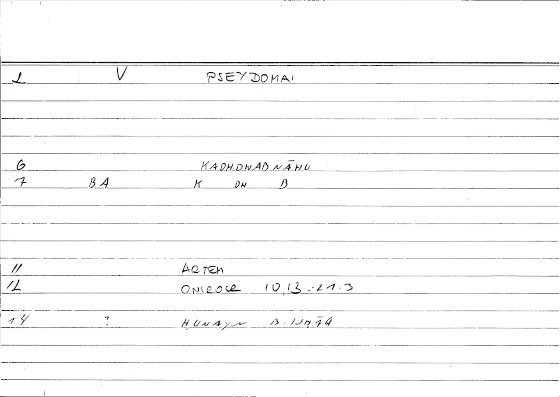 1 V PSEYDOMAI
6 KADHDHABNĀHU
7 BA K DH B
11 ARTEM
12 ONIROCR 10,13 -21.3
14 ? HUNAYN B. ISHĀQ